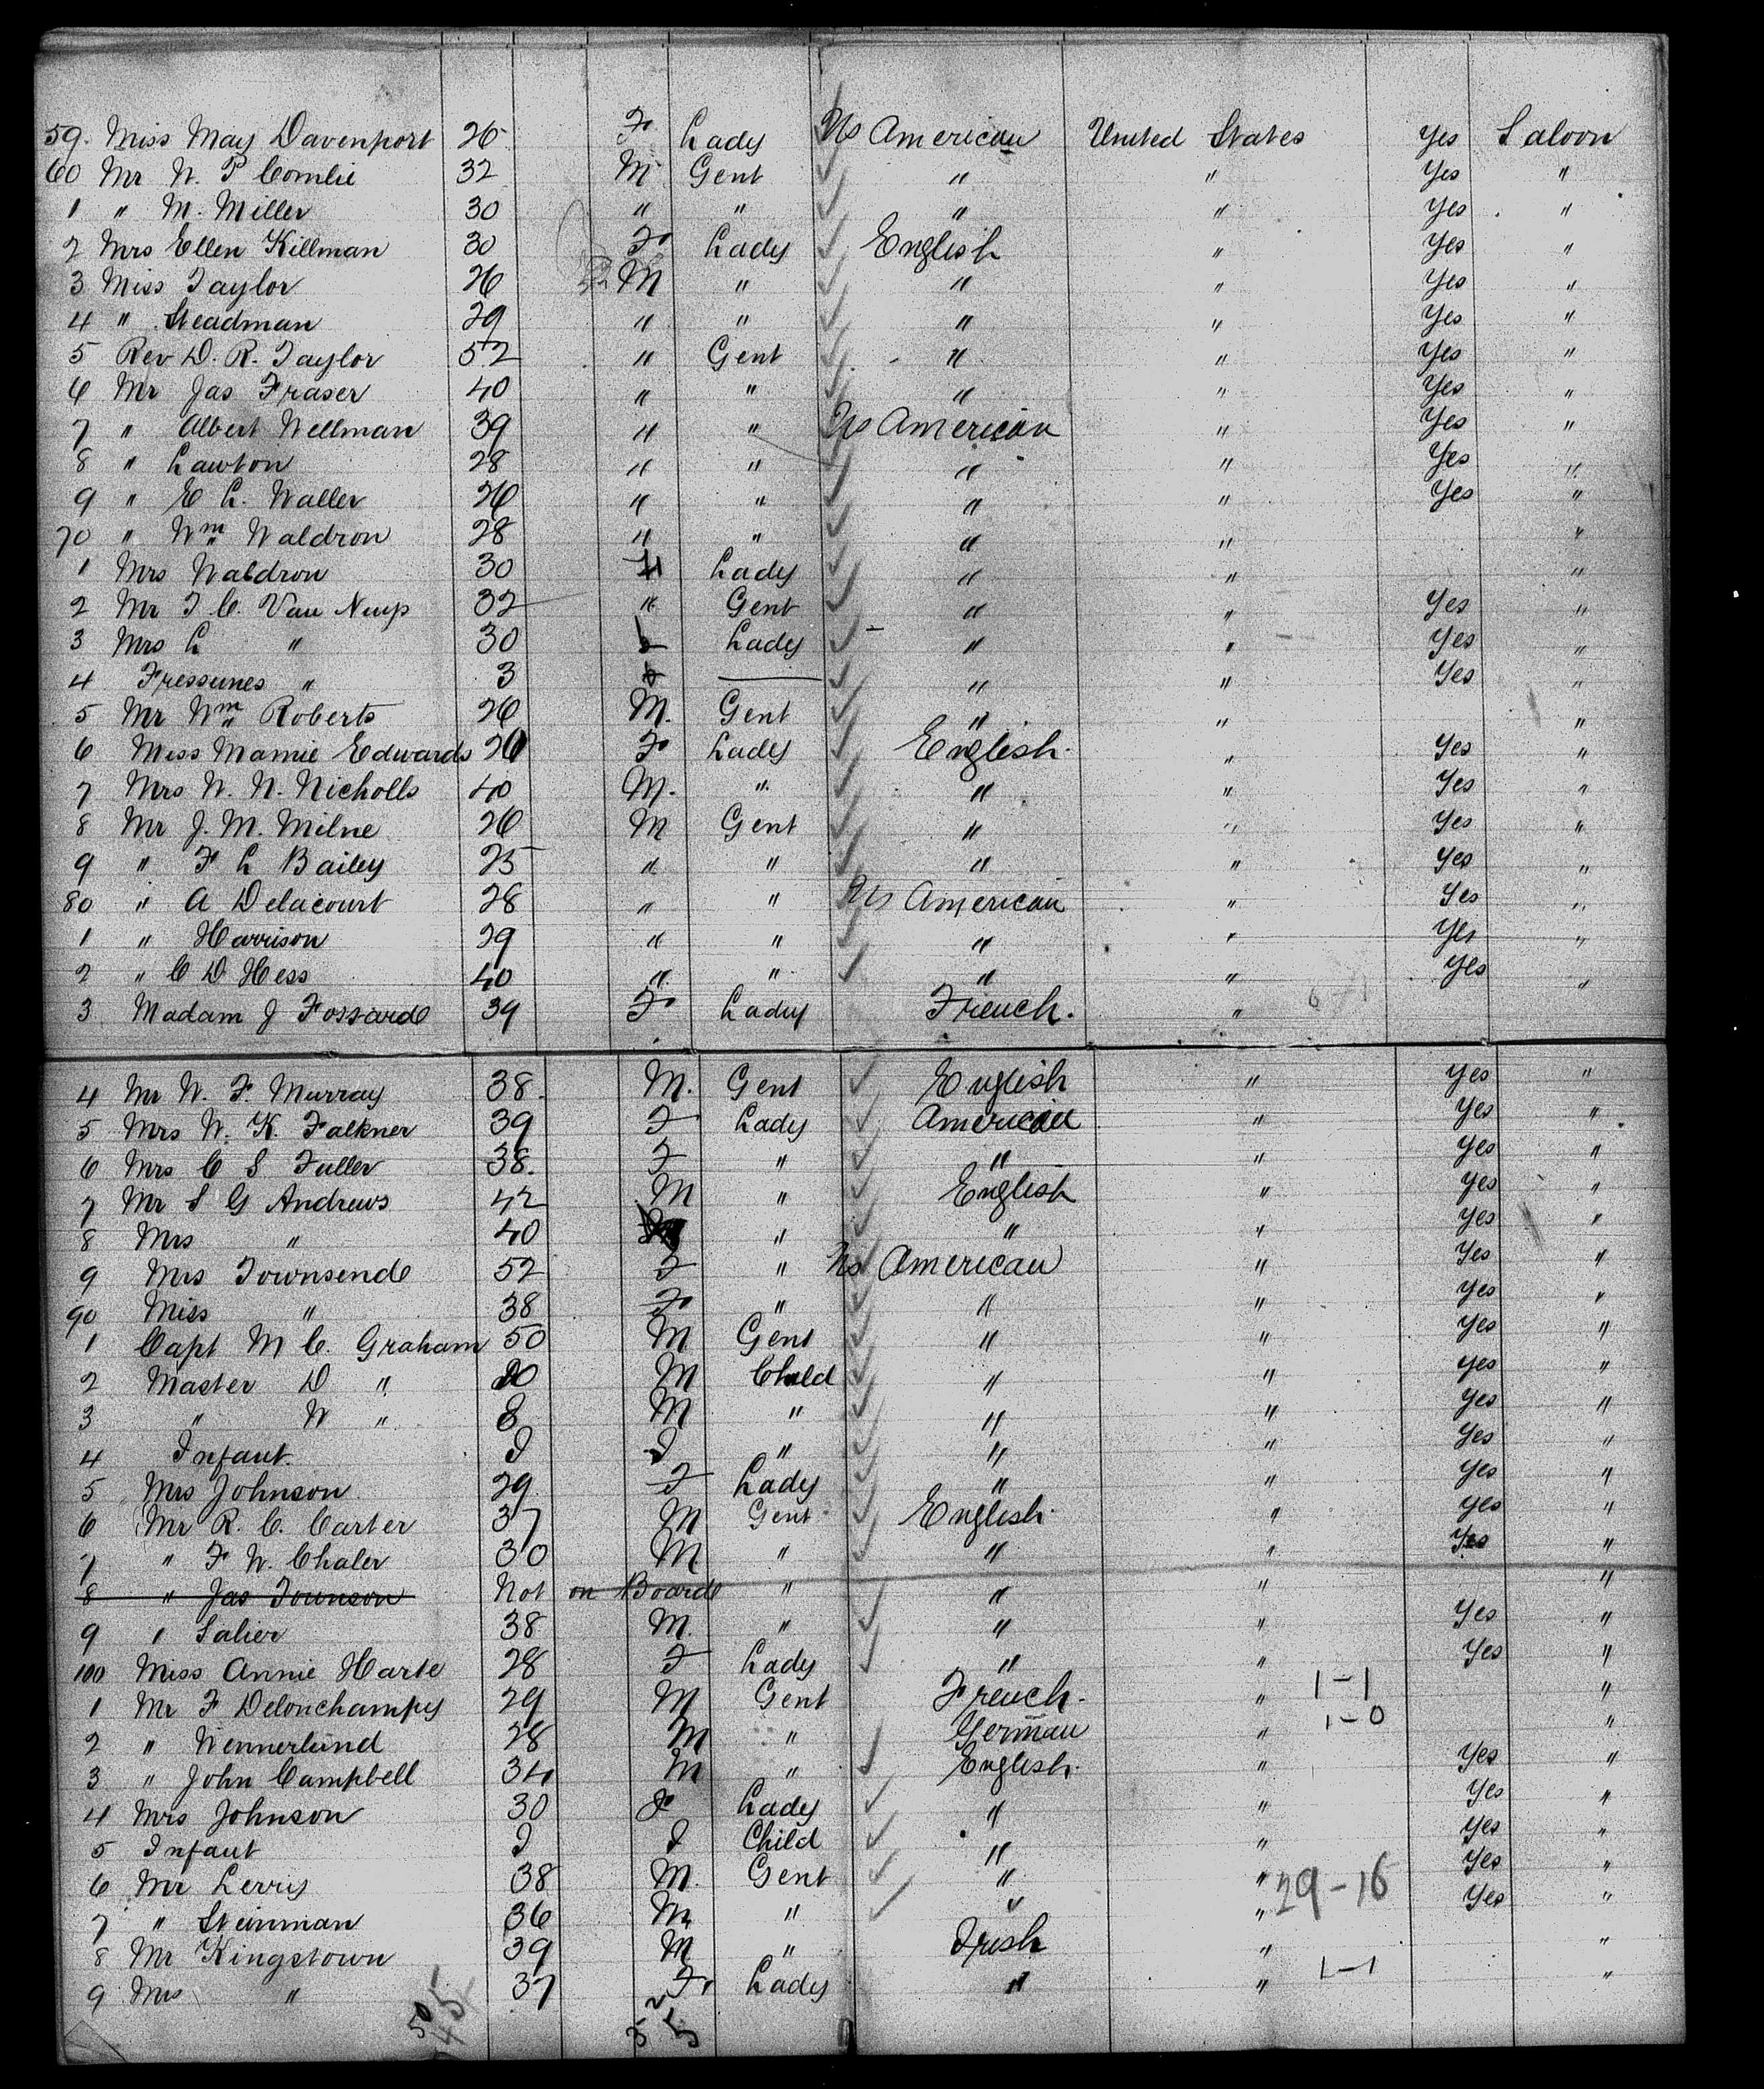 59. Miss May Davenport 26 F Lady Us American United States Yes Saloon
60 Mr W. P Comlie 32 M Gent " " Yes "
1 " M. Miller 30 " " " " Yes "
2 Mrs Ellen Killman 30 F Lady English " Yes "
3 Miss Taylor 26 M " " " Yes "
4 " Steadman 29 " " " " Yes "
5 Rev D. R. Taylor 52 " Gent " " Yes "
6 Mr Jas Fraser 40 " " " " Yes "
7 " Albert Wellman 39 " " Us American " Yes "
8 " Lawton 28 " " " " Yes "
9 " E L. Waller 26 " " " " Yes "
70 " Wm Waldron 28 " " " " "
1 Mrs Waldron 30 F Lady " " "
2 Mr T C. Van Nuys 32 " Gent " " Yes "
3 Mrs L " 30 Lady " " Yes "
4 " 3 " " Yes "
5 Mr Wm Roberts 26 M. Gent " " "
6 Miss Mamie Edwards 26 F Lady English. " Yes "
7 Mrs W. N. Nicholls 40 M. " " " Yes "
8 Mr J. M. Milne 26 M Gent " " Yes "
9 " F L Bailey 25 " " " " Yes "
80 " A Delacourt 28 " " Us American " Yes "
1 " Harrison 29 " " " " Yes "
2 " C D Hess 40 " " " " Yes "
3 Madam J Fossard 39 F Lady French. " "
4 Mr W. F. Murray 38. M. Gent English " Yes "
5 Mrs W. K. Falkner 39 F Lady American " Yes "
6 Mrs C S Fuller 38. F " " " Yes "
7 Mr S G Andrews 42 M " English " Yes "
8 Mrs " 40 " " " Yes "
9 Mrs Townsend 52 F " Us American " Yes "
90 Miss " 38 F " " " Yes "
1 Capt M C. Graham 50 M Gent " " Yes "
2 Master D " M Child " " Yes "
3 " W " 8 M " " " Yes "
4 Infant. I I " " " Yes "
5 Mrs Johnson 29. F Lady " " Yes "
6 Mr R. C. Carter 37 M Gent English " Yes "
7 " F W. Chaler 30 M " " " Yes "
8 " Jas Townson Not on Board " " " "
9 " Salier 38 M. " " " Yes "
100 Miss Annie Harte 28 F Lady " " Yes "
1 Mr F Delonchamps 29 M Gent French. " 1-1 "
2 " Wennerlund 28 M " German " 1-0 "
3 " John Campbell 34 M " English. " Yes "
4 Mrs Johnson 30 F Lady " " Yes "
5 Infant I I Child " " Yes "
6 Mr Lerris 38 M. Gent " " 29-16 Yes "
7 " Steinman 36 M " " " Yes "
8 Mr Kingstown 39 M " Irish " "
9 Mrs " 37 F. Lady " " 1-1 "
50
45